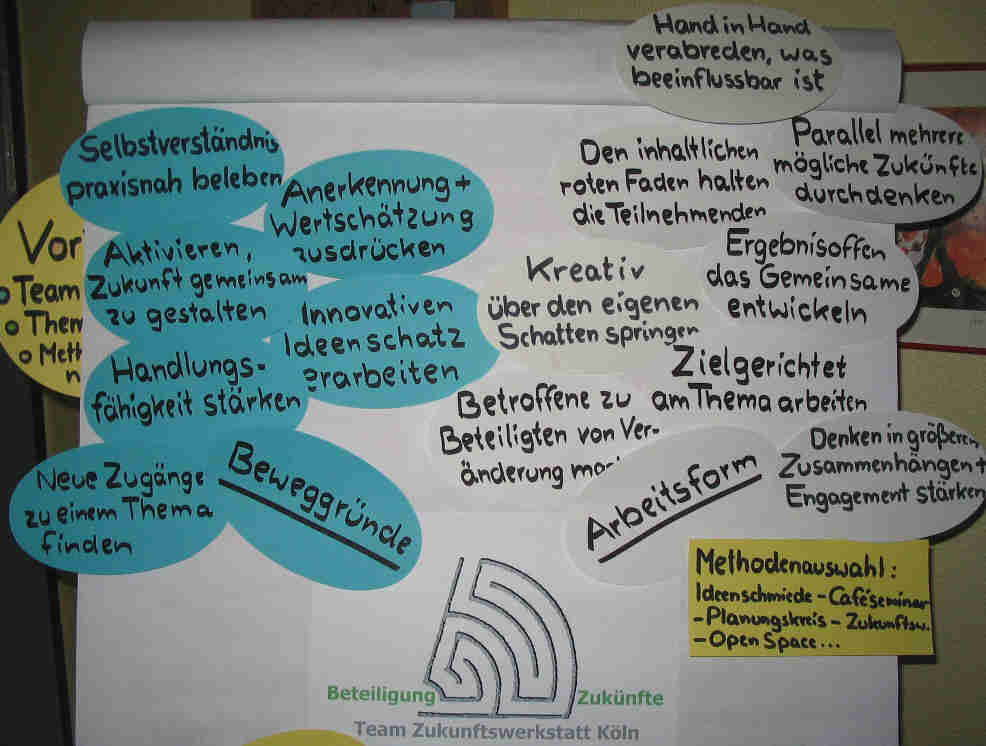 Hand in Hand
verabreden, was
beeinflussbar ist
Selbstverständnis
praxisnah beleben
Anerkennung +
Wertschätzung
ausdrücken
Den inhaltlichen
roten Faden halten
die Teilnehmenden
Parallel mehrere
mögliche Zukünfte
durchdenken
Vor
Team
Them
Meth
Aktivieren,
Zukunft gemeinsam
zu gestalten
Innovativen
Ideenschatz
erarbeiten
Kreativ
über den eigenen
Schatten springen
Ergebnisoffen
das Gemeinsame
entwickeln
Handlungs-
fähigkeit stärken
Betroffene zu
Beteiligten von Ver-
änderung mach
Zielgerichtet
am Thema arbeiten
Neue Zugänge
zu einem Thema
finden
Beweggründe
Arbeitsform
Denken in größeren
Zusammenhängen +
Engagement stärken
Methodenauswahl:
Ideenschmiede - Caféseminar
- Planungskreis - Zukunftsw.
- Open Space...
Beteiligung Zukünfte
Team Zukunftswerkstatt Köln